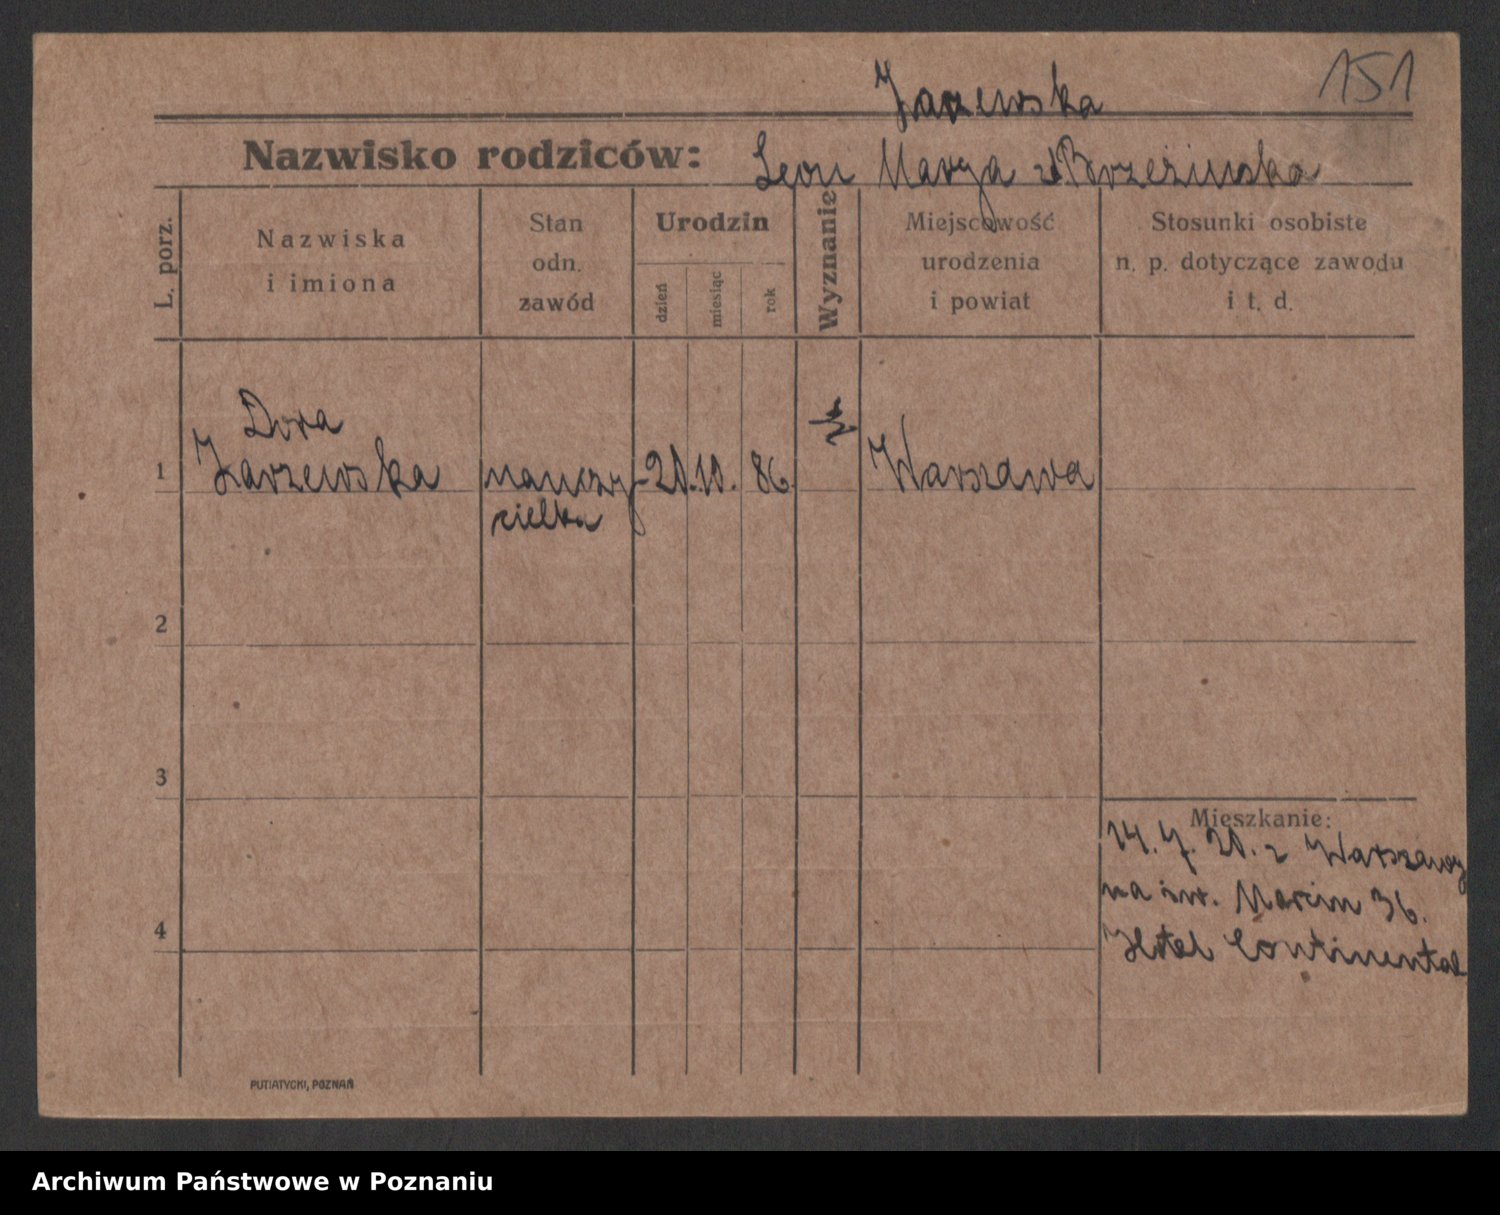 151
Nazwisko rodziców: Leon Marya z Brzezinska
L. porz.
Nazwiska
i imiona
Stan
odn.
zawód
Urodzin
dzień
miesiąc
rok
Wyznanie
Miejscowość
urodzenia
i powiat
Stosunki osobiste
n. p. dotyczące zawodu
i t. d.
Dora
1 Zarzewska nauczy- 20. 10. 86 Warszawa
cielka
2
3
Mieszkanie:
14. 7. 20. z Warszawy
na św. Marcin 36.
4
Hotel Continental
PUTIATYCKI, POZNAŃ
Archiwum Państwowe w Poznaniu